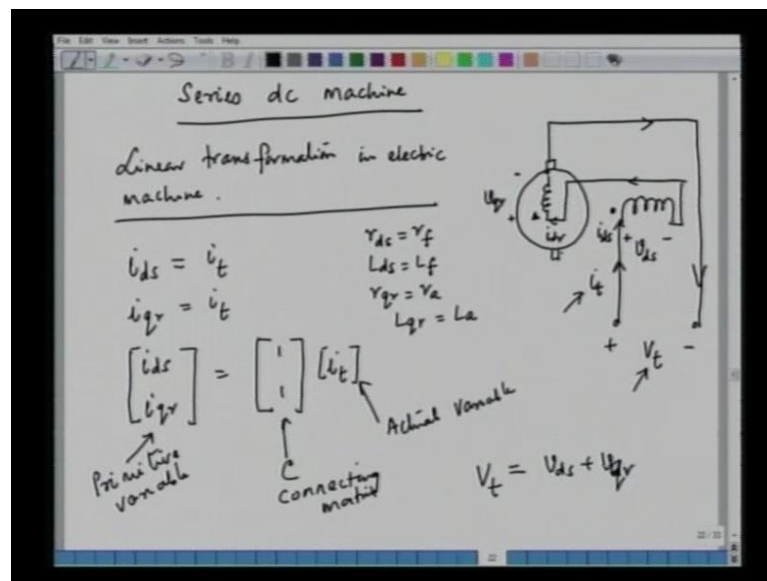 File Edit View Insert Actions Tools Help
Series dc machine
Linear transformation in electric
machine.
ids = it
iqr = it
rds = rf
Lds = Lf
rqr = ra
Lqr = La
[ids
iqr] = [1
1] [it]
Primitive
variable
C
Connecting
matrix
Actual variable
Vt = Vds + Vqr
-
Vqr
+
iqr
ids
+ Vds -
it
+ Vt -
22/22
22